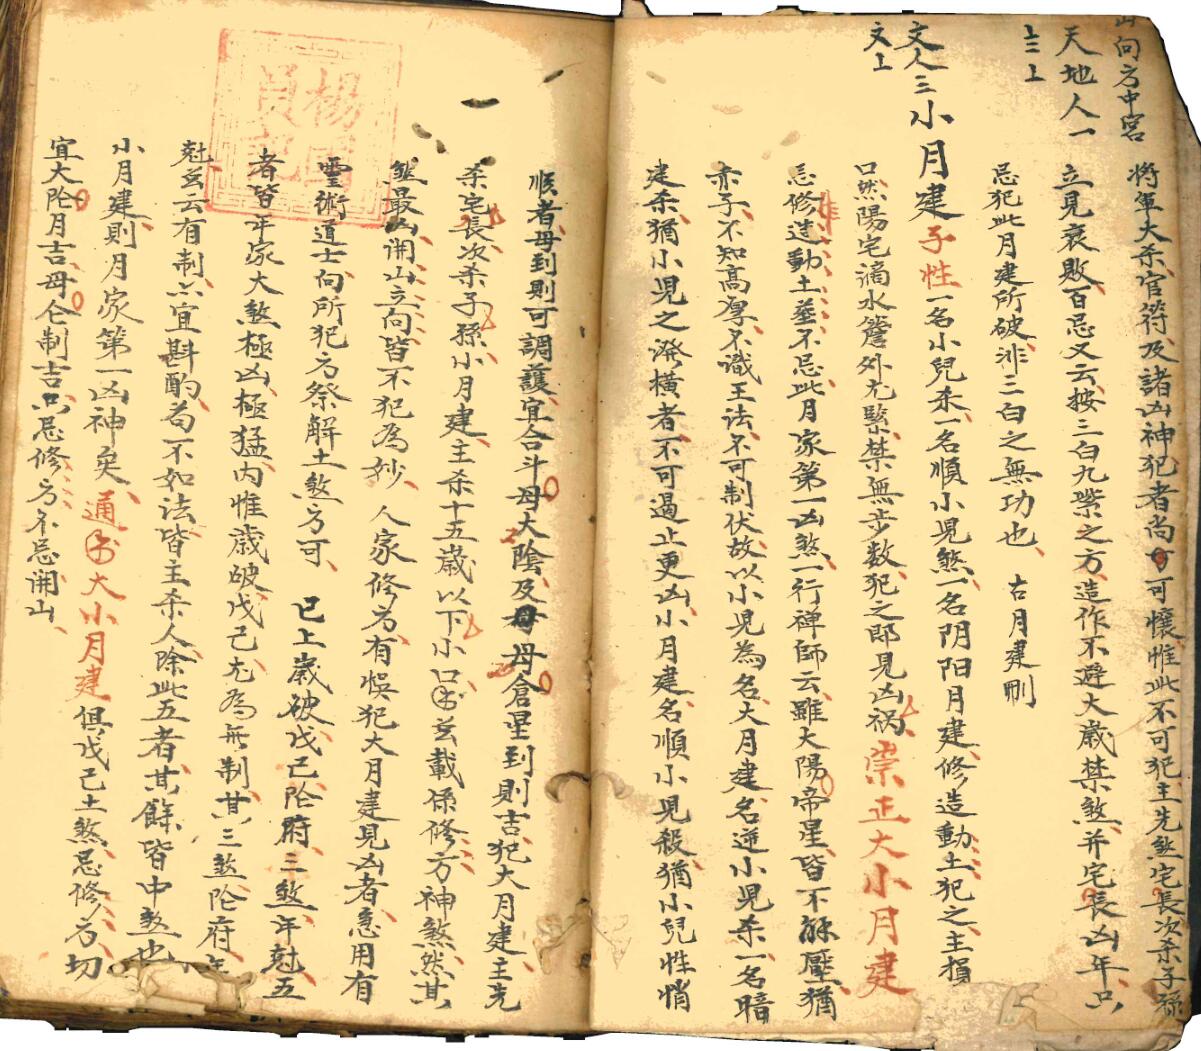 山向方中宮
天地人一
上二上
文人三
文上
將軍大杀官符及諸凶神犯者尚可可懷惟此不可犯主先煞宅長次杀子孫
立見衰敗百忌又云按三白九紫之方造作不避大歲禁煞并宅長凶年只
忌犯此月建所破汼三白之無功也 古月建刪
小月建子性一名小兒杀一名順小児煞一名阴阳月建修造動土犯之主損
口然陽宅滴水簷外尤緊禁無步数犯之即見凶禍崇正大小月建
忌修造動土葬不忌此月家第一凶煞一行禅師云雖太陽帝星皆不能壓猶
赤子不知高厚不識王法不可制伏故以小児為名大月建名逆小児杀一名暗
建杀猶小児之潑橫者不可遏止更凶小月建名順小児殺猶小兒性悄
順者母到則可調護宜合斗母大陰及母母倉星到則吉犯大月建主先
杀宅長次杀子孫小月建主杀十五歲以下小口玄載係修方神煞然其
煞最凶開山立向皆不犯為妙 人家修为有悞犯大月建見凶者急用有
灵術道士向所犯方祭解土煞方可 已上歲破戊己阴府三煞年尅五
者皆年家大煞極凶極猛内惟歲破戊己尤為無制其三煞阴府年
尅玄云有制亦宜斟酌苟不如法皆主杀人除此五者其餘皆中煞也
小月建則月家第一凶神矣通書大小月建俱戊己土煞忌修方切
宜大阴月吉母仓制吉只忌修方不忌開山